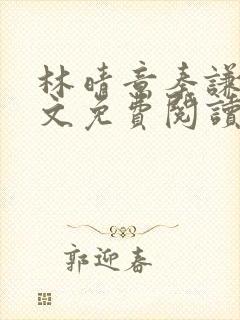 林晴章奏謙
文免費閱讀
郭迎春